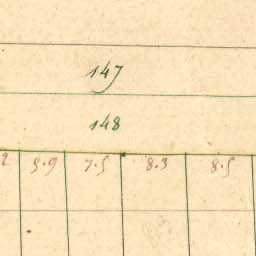 147
148
2 9.9 7.5 8.3 8.5